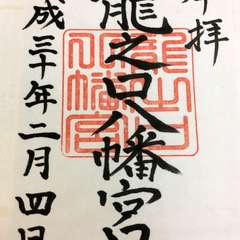 拝
龍之口八幡宮
成三十年二月四日
龍之口
八幡宮